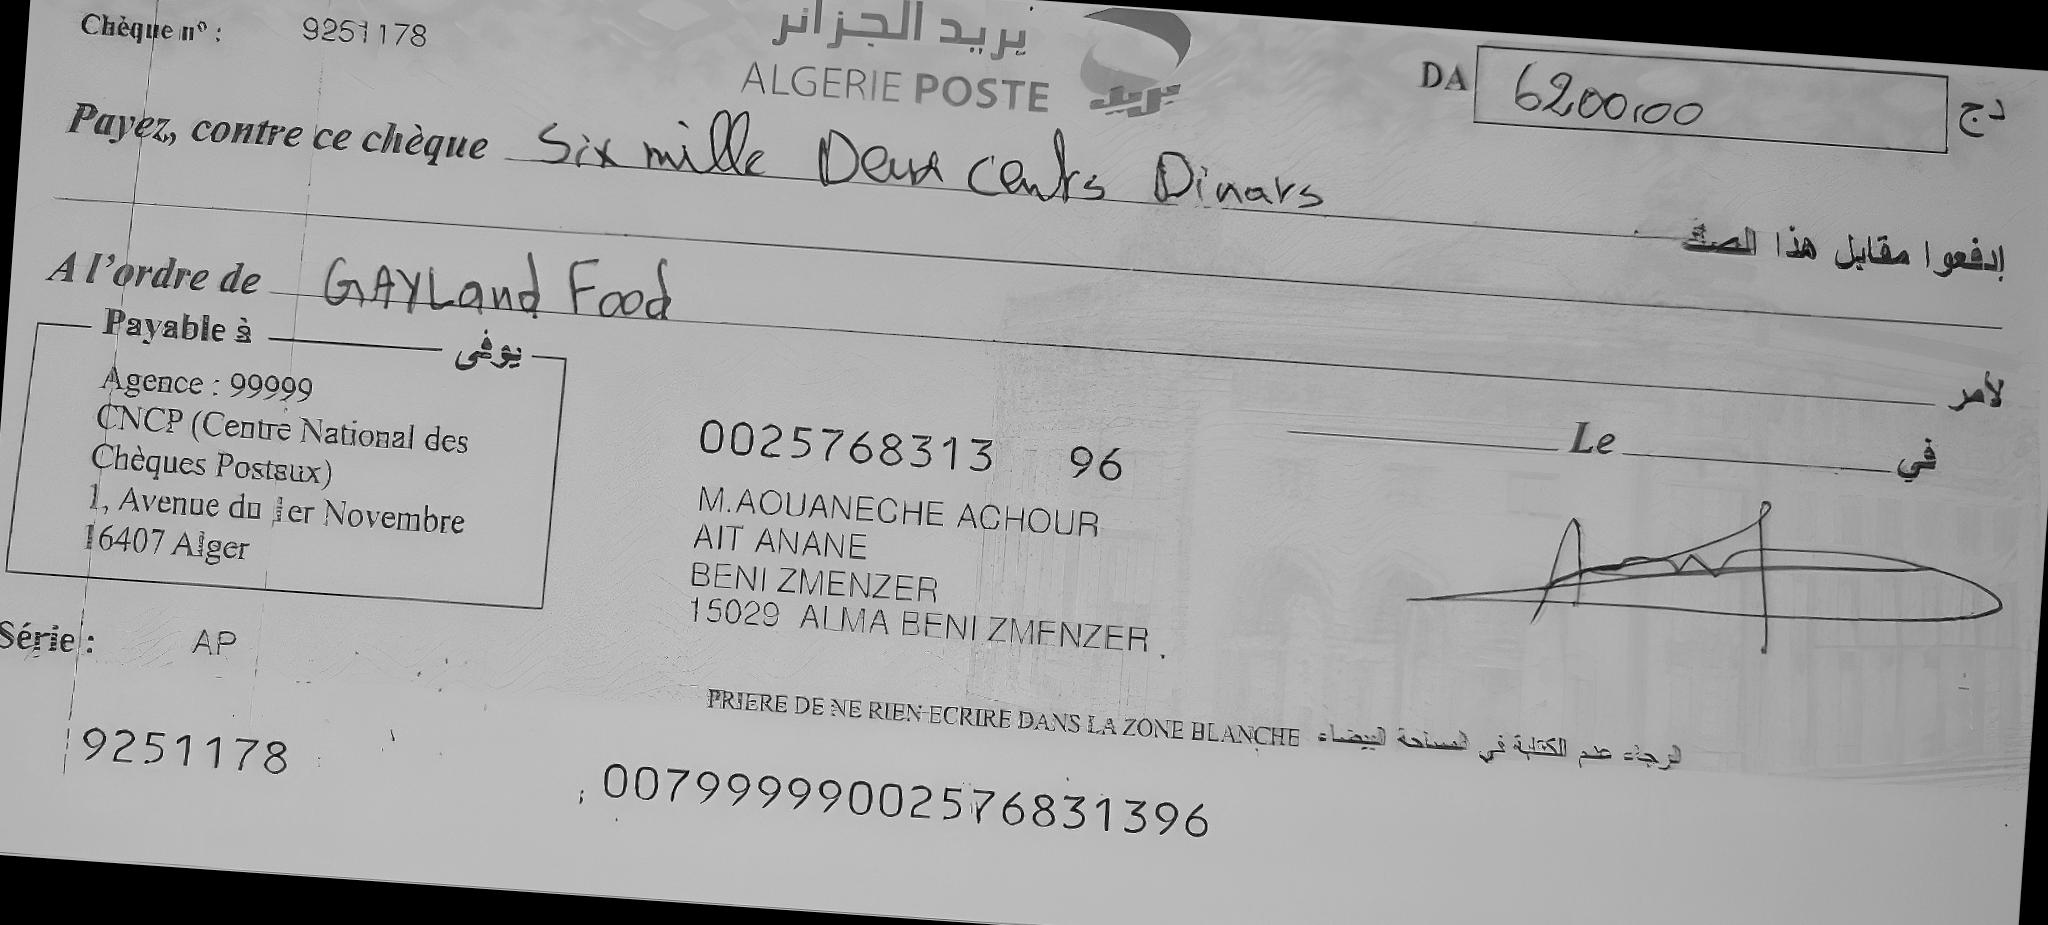 Chèque nº : 9251178
بريد الجزائر
ALGERIE POSTE
بريد
DA 6200,00 دج
Payez, contre ce chèque Six mille Deux cents Dinars
إدفعوا مقابل هذا الصك
A l'ordre de GAYLand Food
لأمر
Payable à يوفى
Agence : 99999
CNCP (Centre National des
Chèques Postaux)
1, Avenue du 1er Novembre
16407 Alger
0025768313 96
M.AOUANECHE ACHOUR
AIT ANANE
BENI ZMENZER
15029 ALMA BENI ZMENZER
Le في
Série : AP
PRIERE DE NE RIEN ECRIRE DANS LA ZONE BLANCHE الرجاء عدم الكتابة في المساحة البيضاء
9251178
00799999002576831396